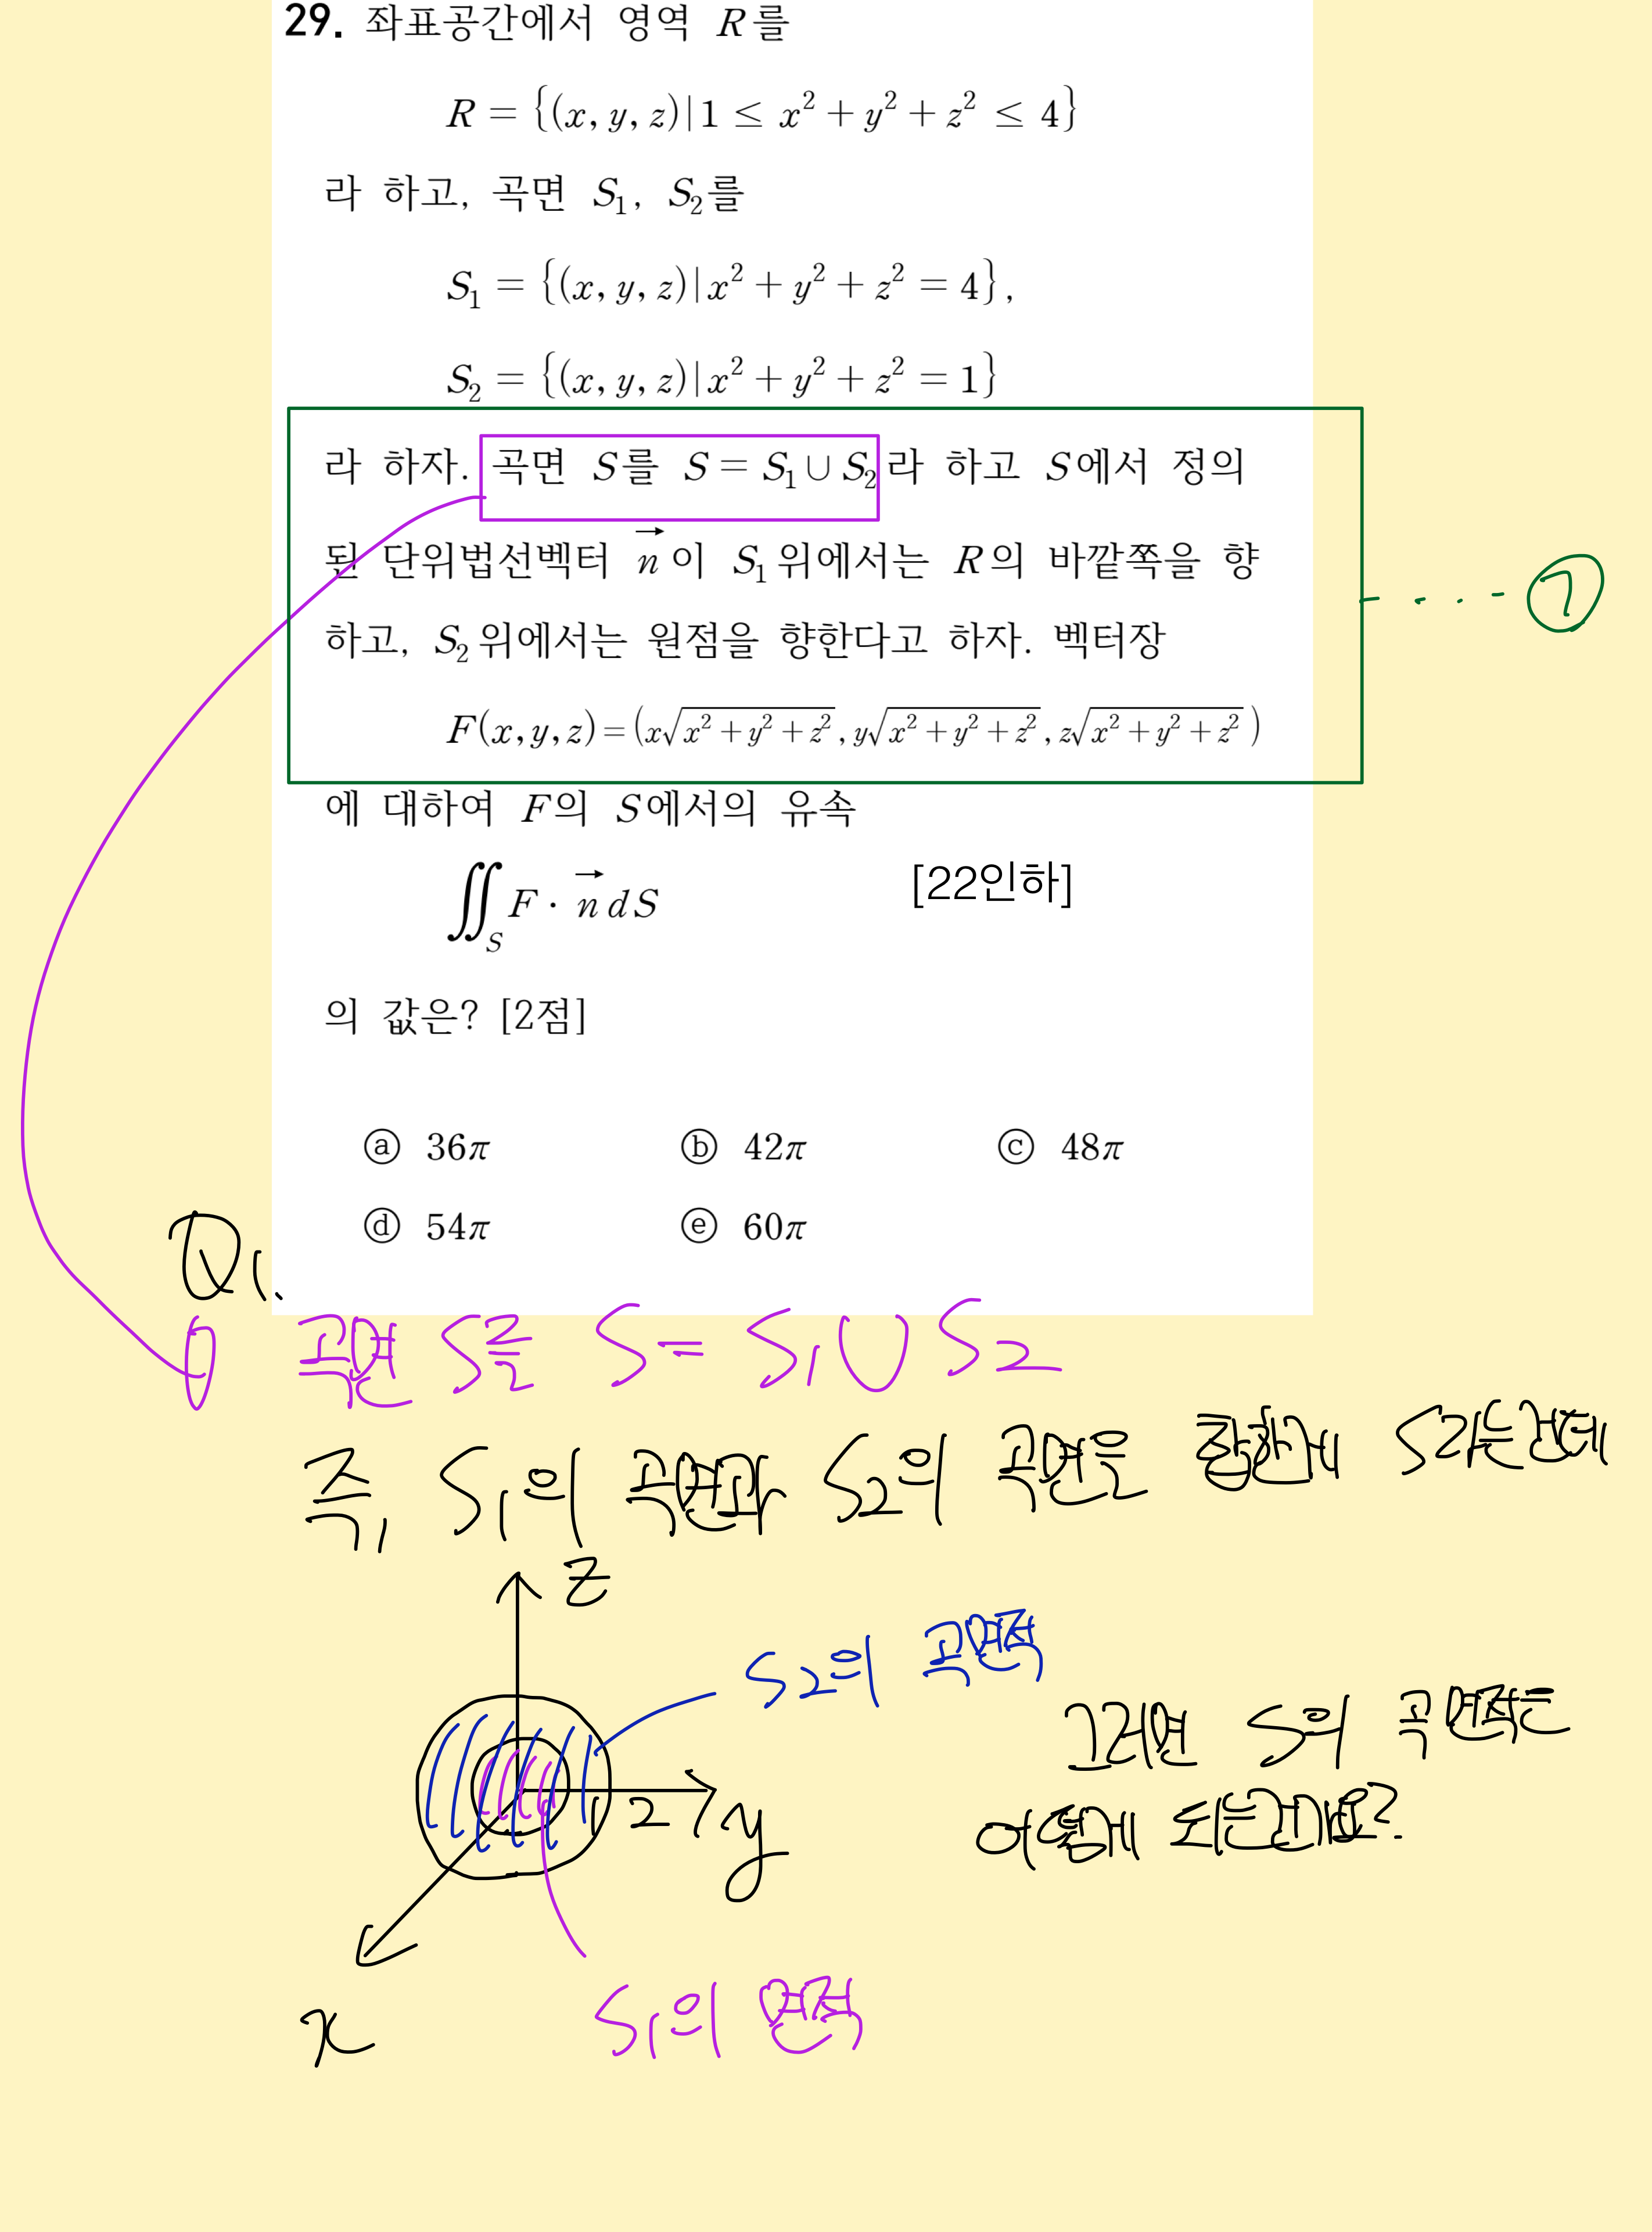 29. 좌표공간에서 영역 R를
R = {(x, y, z)|1 ≤ x² + y² + z² ≤ 4}
라 하고, 곡면 S₁, S₂를
S₁ = {(x, y, z)|x² + y² + z² = 4},
S₂ = {(x, y, z)|x² + y² + z² = 1}
라 하자. 곡면 S를 S = S₁∪S₂라 하고 S에서 정의
된 단위법선벡터 n⃗이 S₁위에서는 R의 바깥쪽을 향
하고, S₂위에서는 원점을 향한다고 하자. 벡터장
F(x, y, z) = (x√(x² + y² + z²), y√(x² + y² + z²), z√(x² + y² + z²))
에 대하여 F의 S에서의 유속
∬_S F · n⃗ dS [22인하]
의 값은? [2점]
ⓐ 36π ⓑ 42π ⓒ 48π
ⓓ 54π ⓔ 60π
Q1.
곡면 S를 S = S1∪S2
즉, S1의 곡면과 S2의 곡면을 합한게 S라는건데
z
S2의 곡면적
그러면 S의 곡면적은
어떻게 되는건가요?
1 2 y
x
S1의 면적